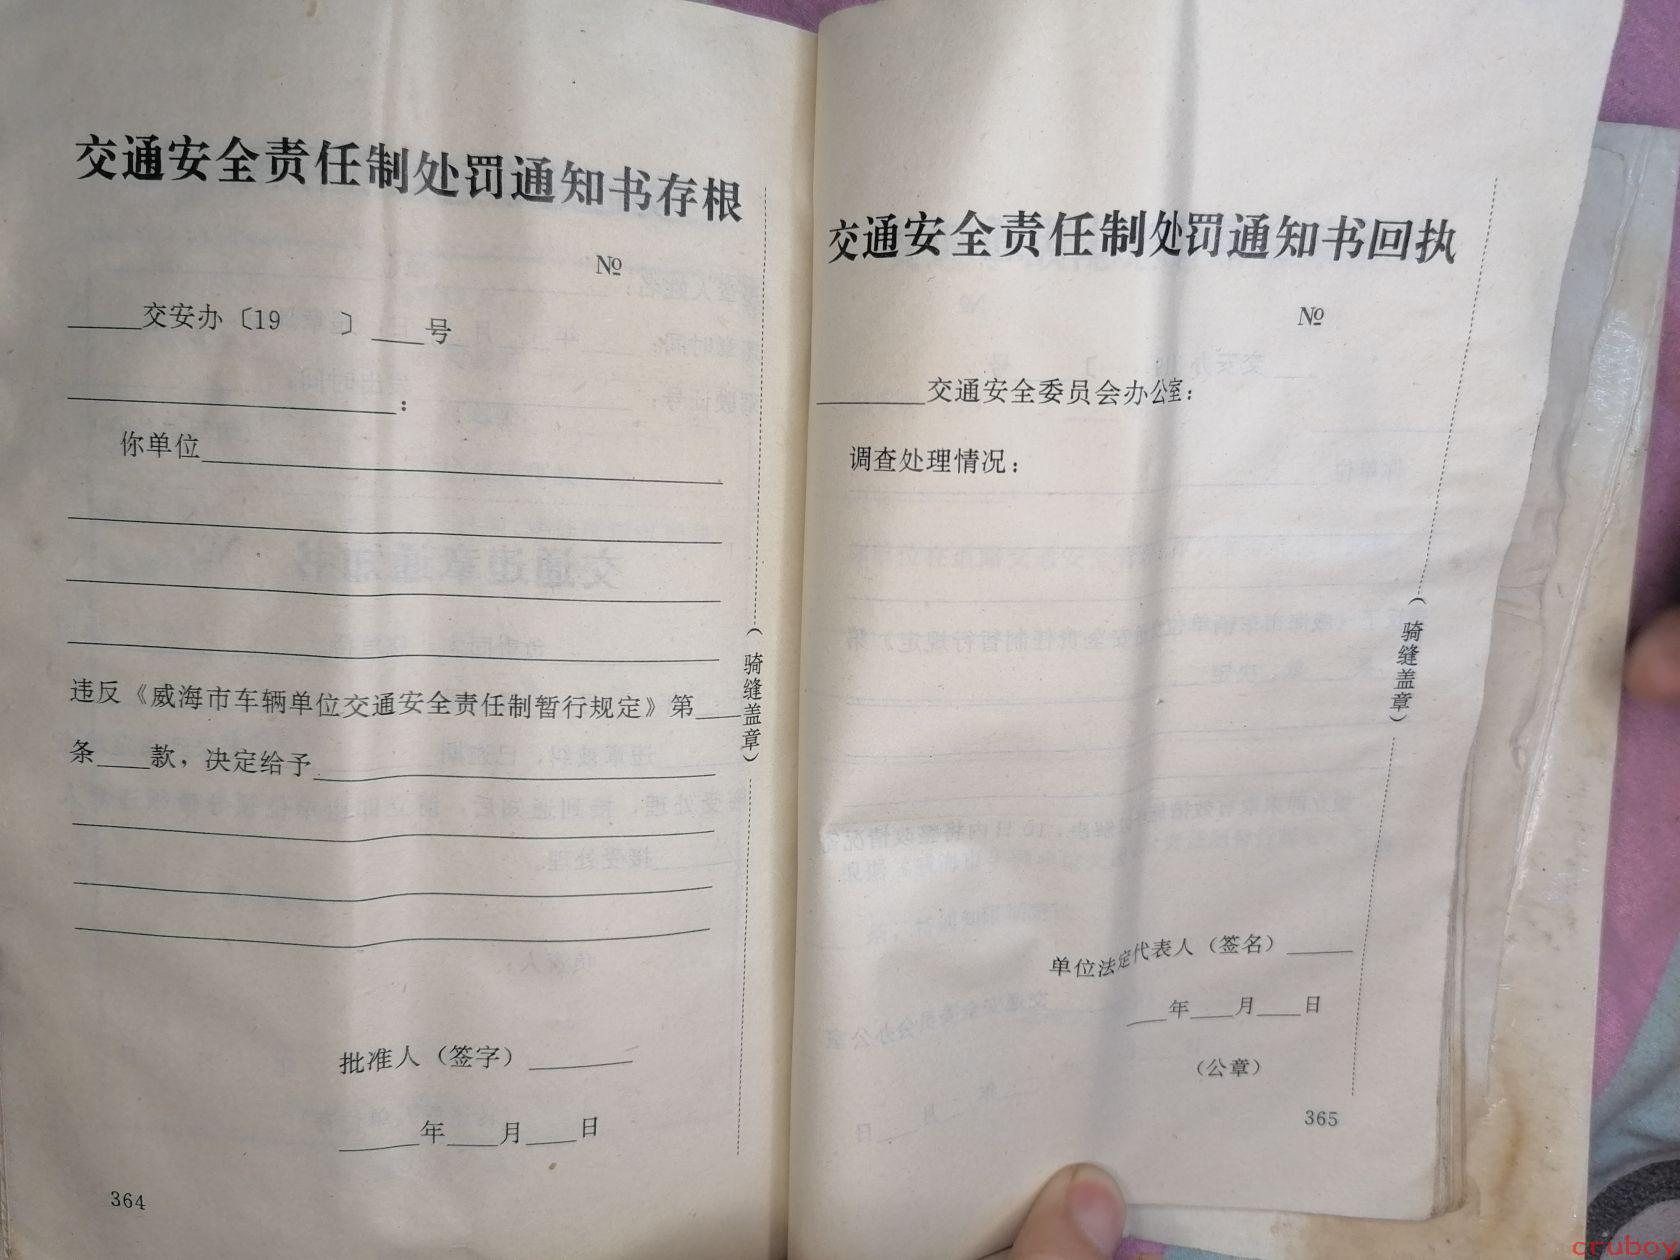 交通安全责任制处罚通知书存根
№
____交安办〔19 〕___号
____:
你单位____
违反《威海市车辆单位交通安全责任制暂行规定》第___
条___款，决定给予____
批准人（签字）____
____年___月___日
（骑缝盖章）
364
交通安全责任制处罚通知书回执
№
____交通安全委员会办公室：
调查处理情况：
单位法定代表人（签名）____
___年___月___日
（公章）
（骑缝盖章）
365
cruboy